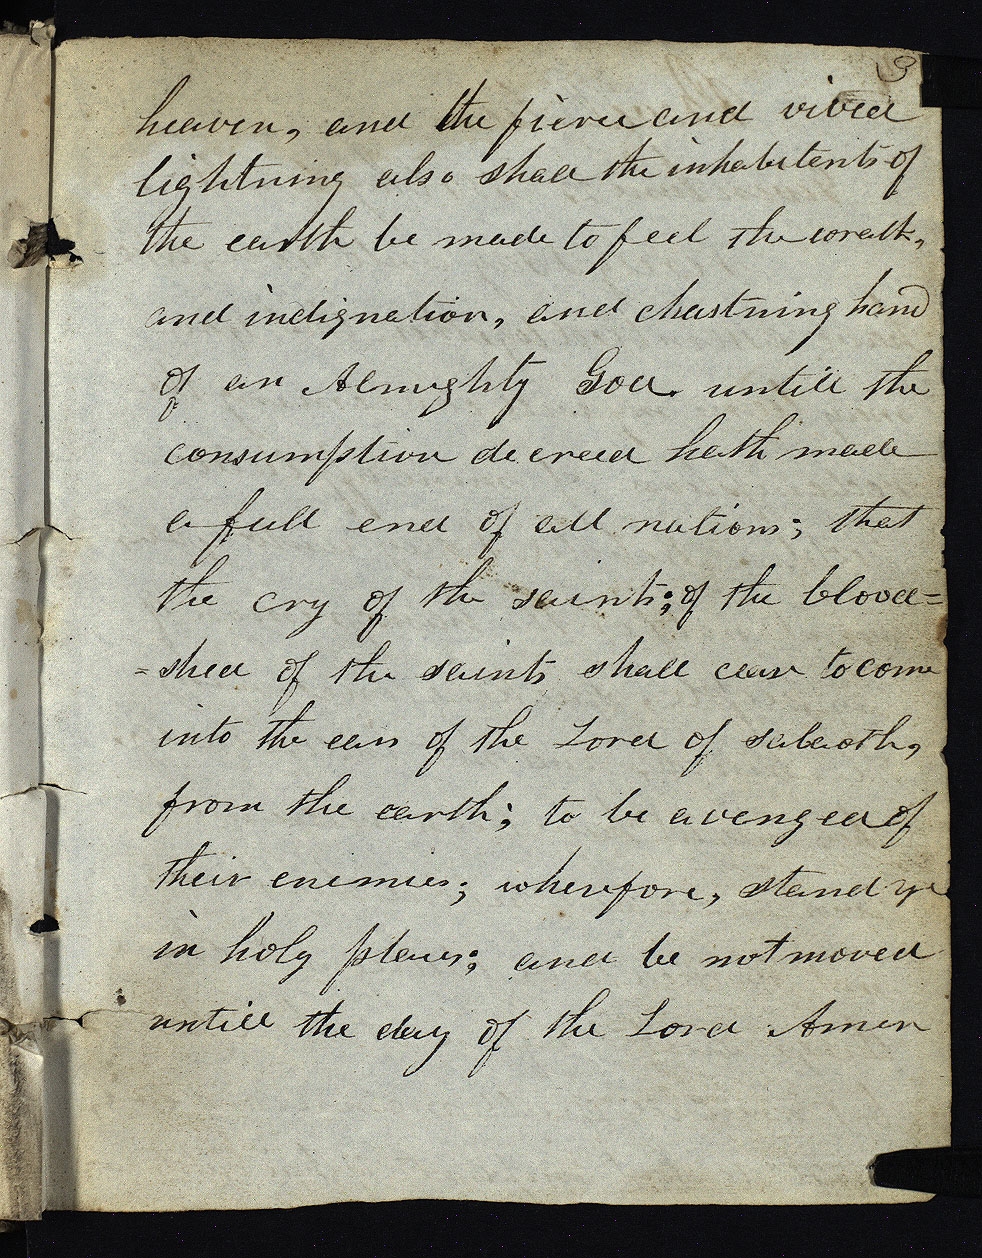 3
heaven, and the fierce and vived
lightning also shall the inhabitents of
the earth be made to feel the wrath,
and indignation, and chastning hand
of an Almighty God untill the
consumption decreed hath made
a full end of all nations; that
the cry of the saints; of the blood=
=shed of the saints shall cear to come
into the ears of the Lord of sabaoth,
from the earth; to be avenged of
their enemies; wherefore, stand ye
in holy places; and be not moved
untill the day of the Lord Amen